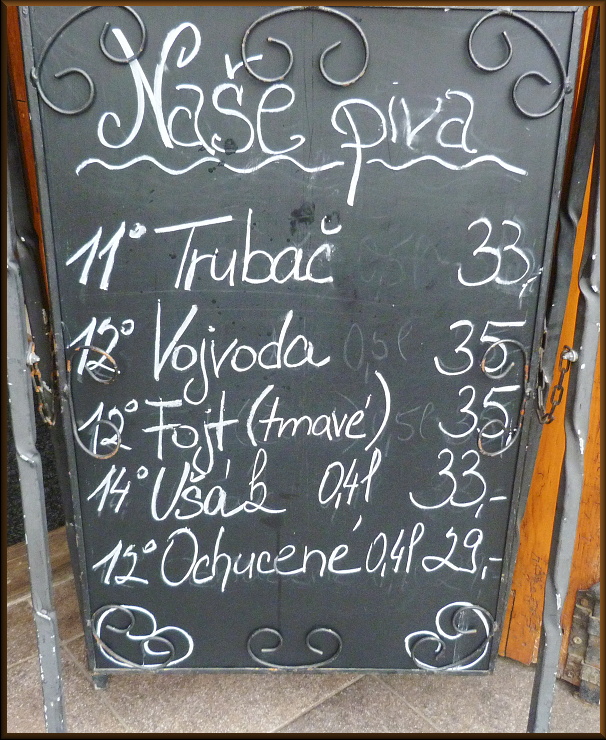 Naše piva
11° Trubač 33,
12° Vojvoda 0,5l 35
12° Fojt (tmavé) 0,5l 35
14° Ušák 0,4l 33,-
12° Ochucené 0,4l 29,-